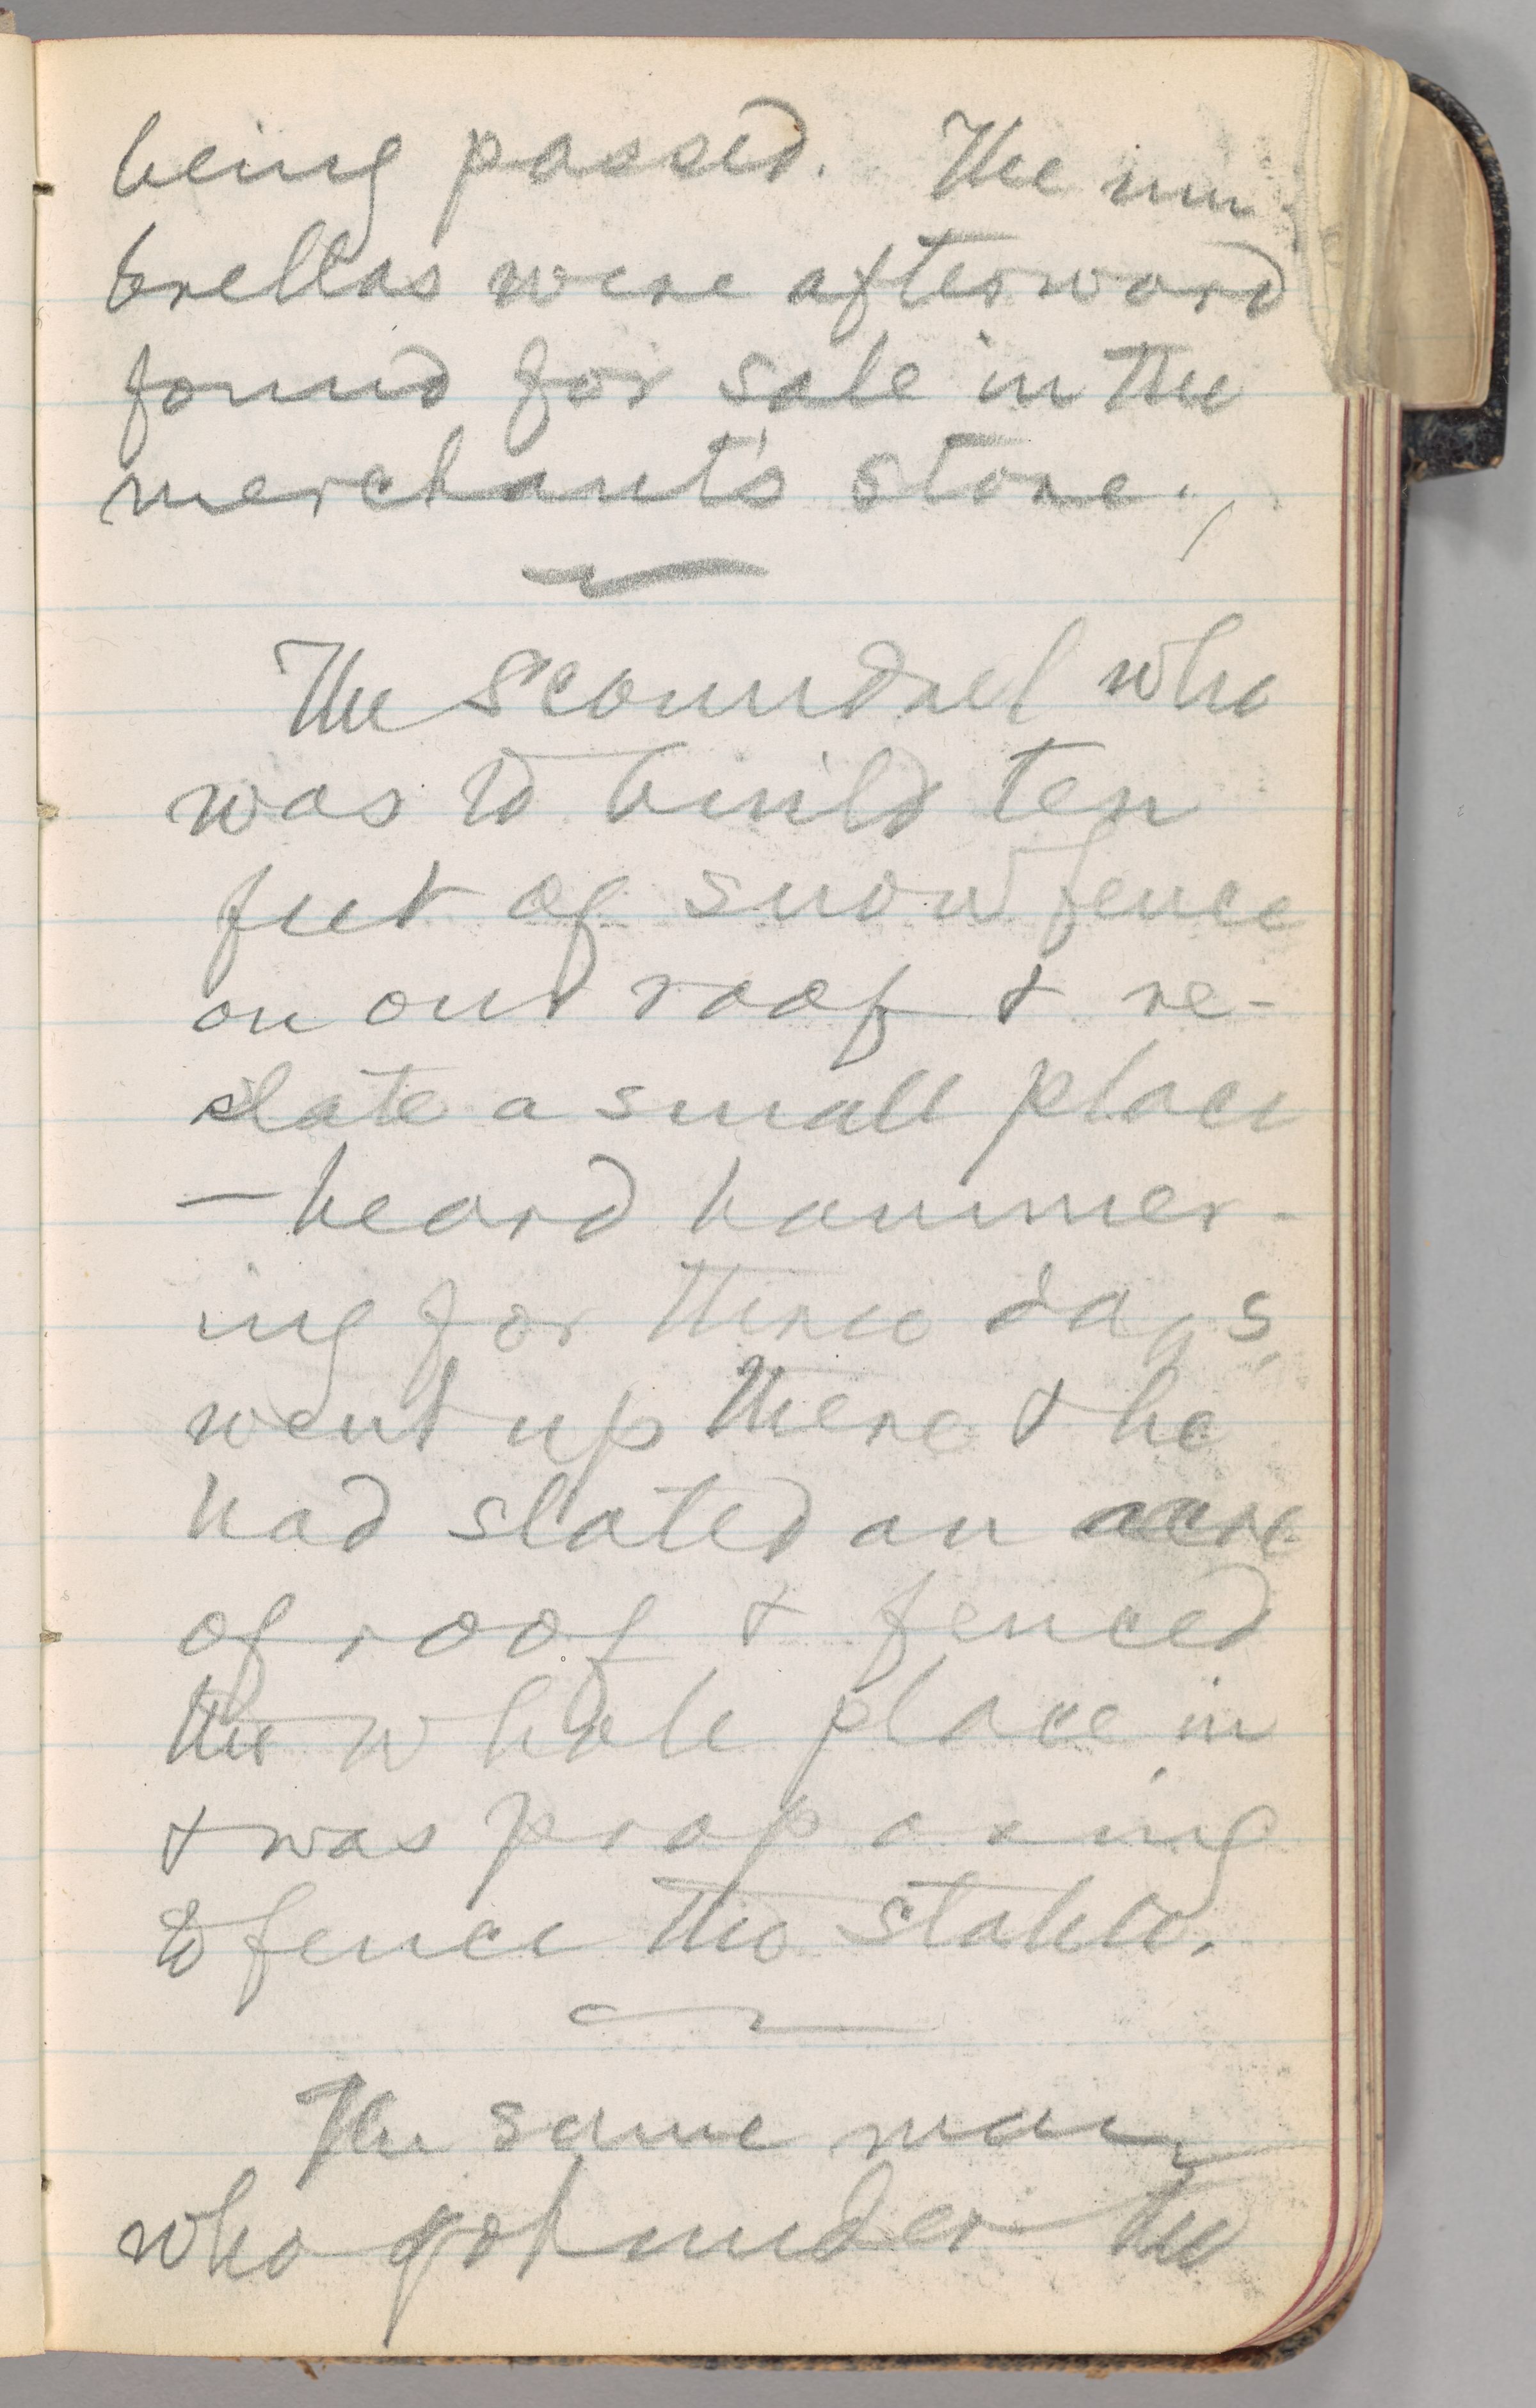 being passed. The um-
brellas were afterward
found for sale in the
merchant's store.
The scoundrel who
was to build ten
feet of snow fence
on our roof & re-
slate a small place
— heard hammer-
ing for three days,
went up there & he
had slated an acre
of roof & fenced
the whole place in
& was proposing
to fence the stable.
The same man
who got under the